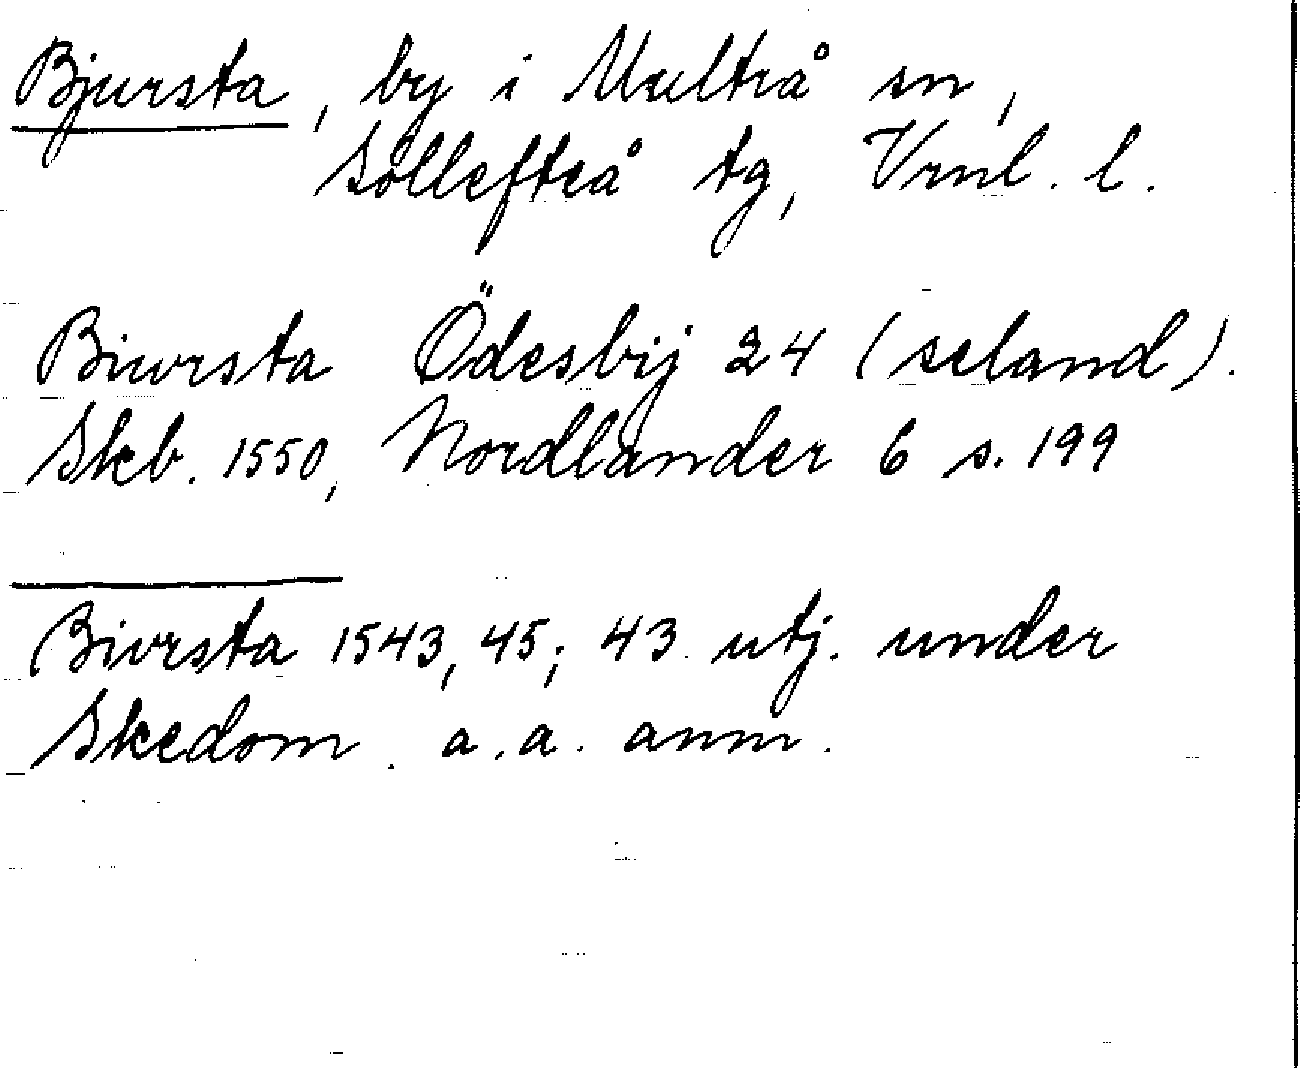 Bjursta, by i Multrå sn,
Sollefteå tg, Vrnl. l.
Biwrsta Ödesbij 24 (seland).
Skb. 1550, Nordlander 6 s. 199
Bivrsta 1543, 45; 43 utj. under
Skedom. a.a. anm.